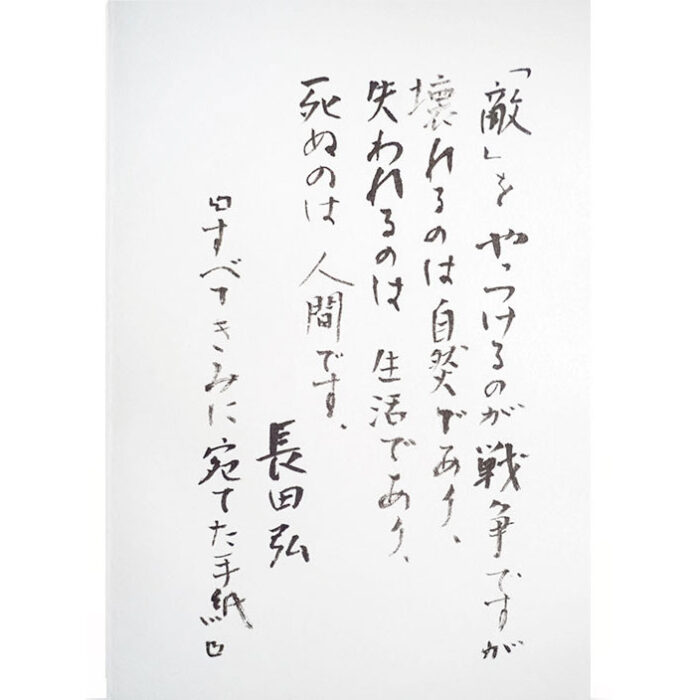 「敵」を やっつけるのが戦争ですが
壊れるのは自然であり、
失われるのは 生活であり、
死ぬのは 人間です。
長田弘
『すべてきみに宛てた手紙』